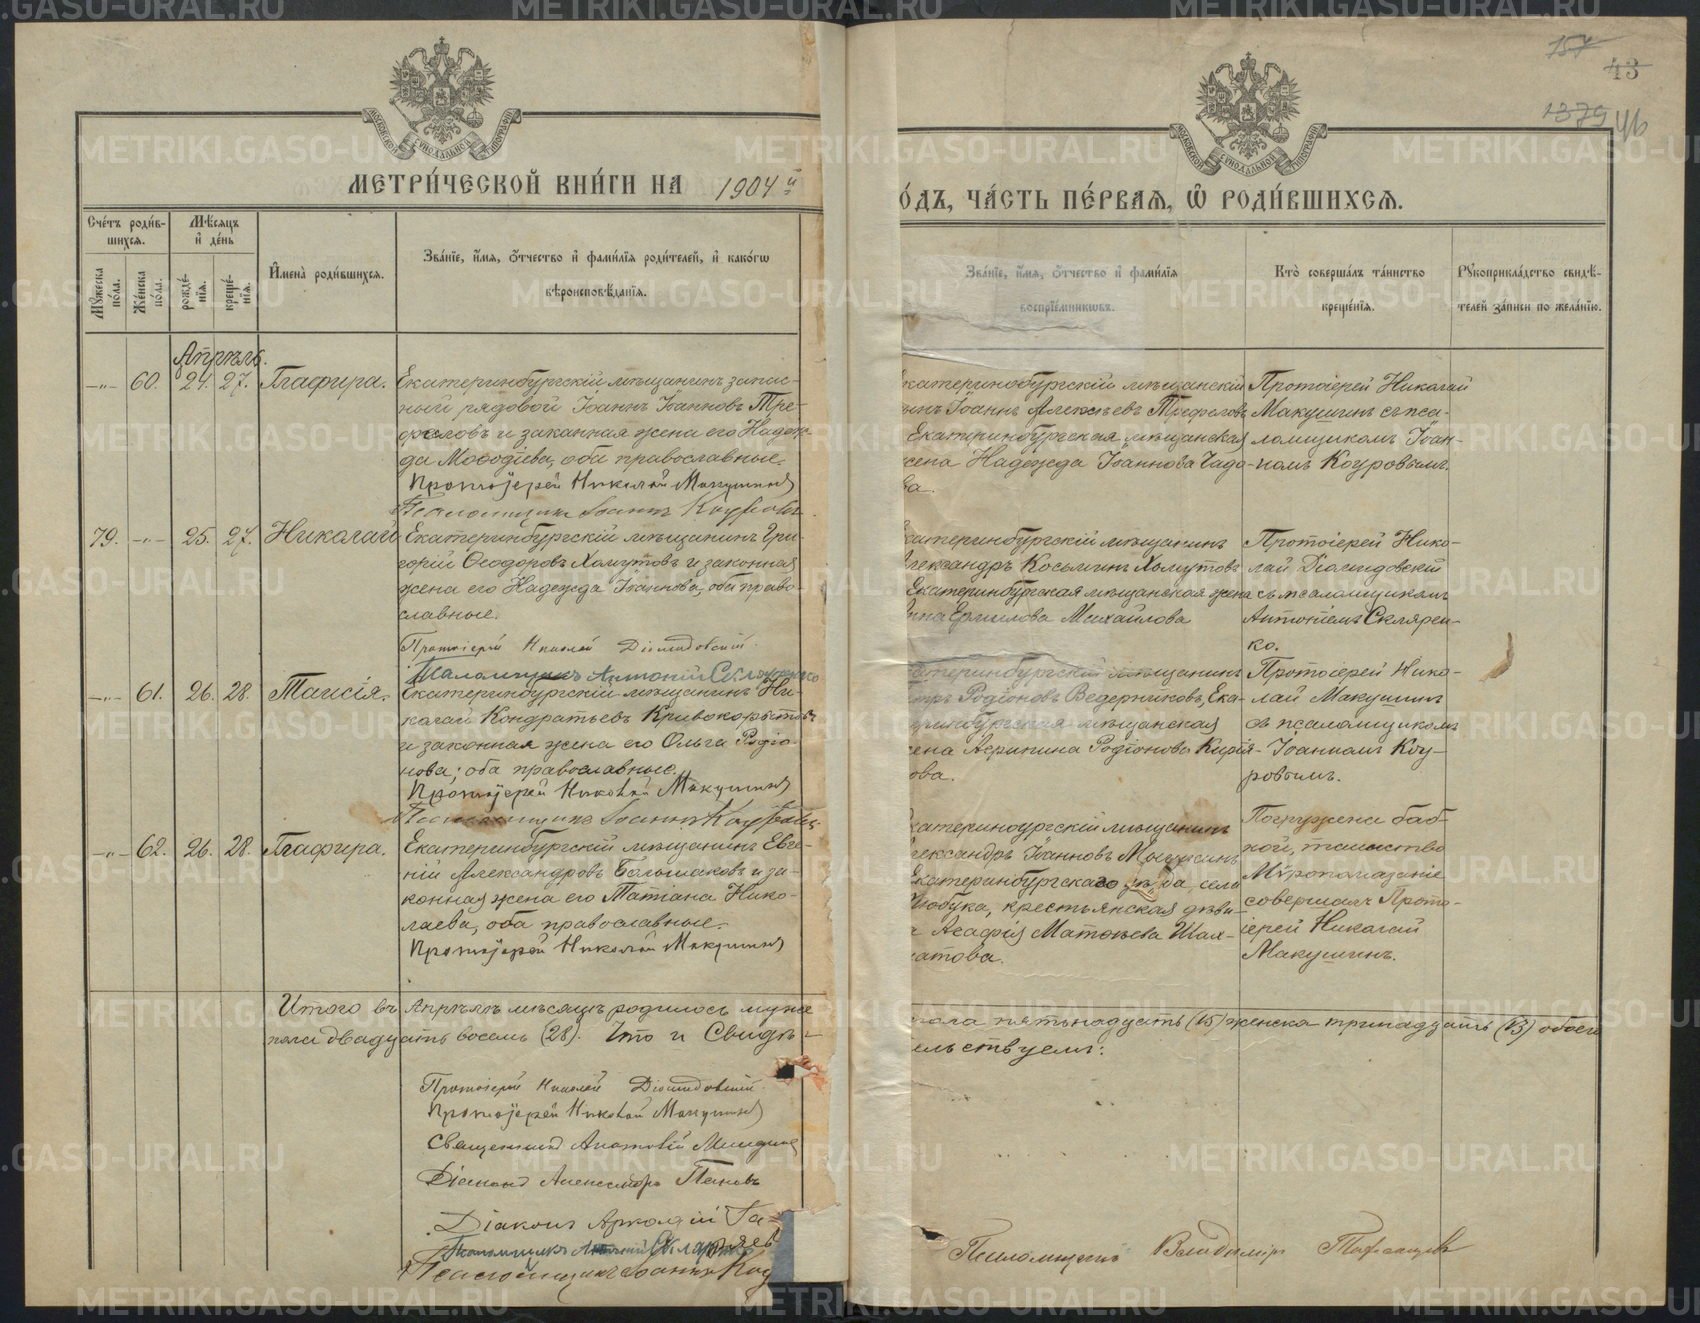 157
43
1379
46
МОСКОВСКОЙ СѴНОДАЛЬНОЙ ТИПОГРАФІИ
МОСКОВСКОЙ СѴНОДАЛЬНОЙ ТИПОГРАФІИ
МЕТРИ́ЧЕСКОЙ КНИ́ГИ НА 1904 й
О́ДЪ, ЧА́СТЬ ПЕ́РВАЯ, Ѡ҆ РОДИ́ВШИХСЯ.
Сче́тъ роди́в-
шихся.
Мѣ́сяцъ
и҆ де́нь
Мꙋ́жеска по́ла.
Же́нска по́ла.
рожде́-
нїя.
креще́-
нїя.
И҆мена̀ роди́вшихся.
Зва́нїе, и҆́мя, ѻ҆́тчество и҆ фами́лїя роди́телей, и҆ како́гѡ
вѣроисповѣ́данїя.
Зва́нїе, и҆́мя, ѻ҆́тчество и҆ фами́лїя
воспрїе́мникѡвъ.
Кто̀ соверша́лъ та́инство
креще́нїя.
Рꙋкоприкла́дство свидѣ́-
телей за́писи по жела́нїю.
Апрѣль.
—„— 60. 24. 27. Глафира.
Екатеринбургскій мѣщанинъ запас-
ный рядовой Іоаннъ Іоанновъ Тре-
филовъ и законная жена его Надеж-
да Меѳодіева, оба православные.
Протоіерей Николай Макушинъ
Псаломщикъ Іоаннъ Коуровъ.
катеринбургскій мѣщанскій
сынъ Іоаннъ Алексѣевъ Трефиловъ
Екатеринбургская мѣщанская
жена Надежда Іоаннова Чадо-
ва.
Протоіерей Николай
Макушинъ съ пса-
ломщикомъ Іоан-
номъ Коуровымъ.
79. —„— 25. 27. Николай
Екатеринбургскій мѣщанинъ Гри-
горій Ѳеодоровъ Хомутовъ и законная
жена его Надежда Іоаннова, оба право-
славные.
Протоіерей Николай Діомидовскій.
Псаломщикъ Антоній Скляренко
катеринбургскій мѣщанинъ
Александръ Косьминъ Хомутовъ
Екатеринбургская мѣщанская жена
Анна Ермилова Михайлова
Протоіерей Нико-
лай Діомидовскій
съ псаломщикомъ
Антоніемъ Склярен-
ко.
—„— 61. 26. 28. Таисія.
Екатеринбургскій мѣщанинъ Ни-
колай Кондратьевъ Кривокорытовъ
и законная жена его Ольга Родіо-
нова; оба православные.
Протоіерей Николай Макушинъ
Псаломщикъ Іоаннъ Коуровъ
катеринбургскій мѣщанинъ
Петръ Родіоновъ Ведерниковъ, Ека-
теринбургская мѣщанская
жена Агрипина Родіонова Кирія-
ова.
Протоіерей Нико-
лай Макушинъ
съ псаломщикомъ
Іоанномъ Коу-
ровымъ.
—„— 62. 26. 28. Глафира.
Екатеринбургскій мѣщанинъ Евге-
ній Александровъ Большаковъ и за-
конная жена его Татіана Нико-
лаева, оба православные.
Протоіерей Николай Макушинъ
катеринбургскій мѣщанинъ
Александръ Іоанновъ
Екатеринбургскаго уѣзда, села
крестьянская дѣви-
Агафія Матѳеева Шах-
матова.
Погружена баб-
кой, таинство
Мѵропомазаніе
совершалъ Прото-
іерей Николай
Макушинъ.
Итого въ Апрѣлѣ мѣсяцѣ родилось муже
пола пятьнадцать (15) женска тринадцать (13) обоего
пола двадцать восемь (28). Что и Свидѣ-
тельствуемъ:
Протоіерей Николай Діомидовскій.
Протоіерей Николай Макушинъ
Священникъ Анатолій
Діаконъ Александръ Поповъ
Діаконъ Аркадій Га-
ряевъ
Псаломщикъ Антоній Скляренко
Псаломщикъ Іоаннъ Коу
Псаломщикъ Владиміръ
METRIKI.GASO-URAL.RU